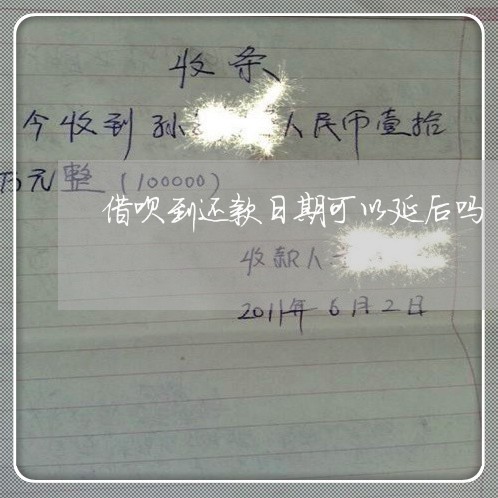 收条
今收到孙 人民币壹拾
万元整(100000)
借呗到还款日期可以延后吗
收款人
2011年6月2日